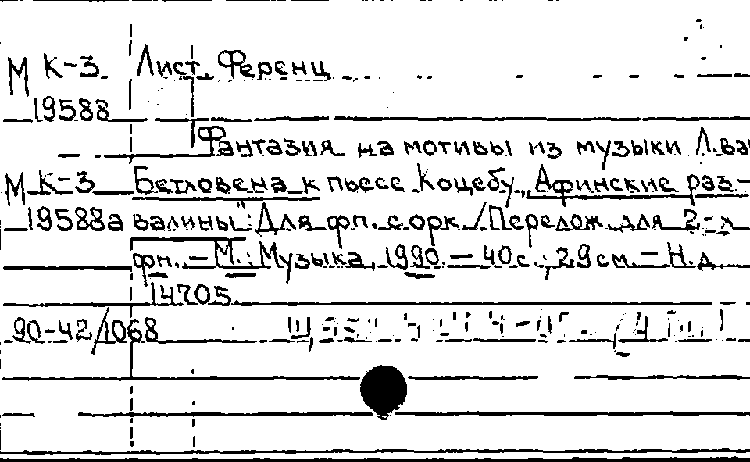 М К-3 Лист, Ференц
19588
Фантазия на мотивы из музыки Л. ва
М К-3 Бетховена к пьесе Коцебу „Афинские раз-
19588а валины": Для фп. с орк. / Перелож. для 2-х
фп. – М.: Музыка, 1990. – 40 с.; 29 см. – Н.д.
14705.
90-42/1068